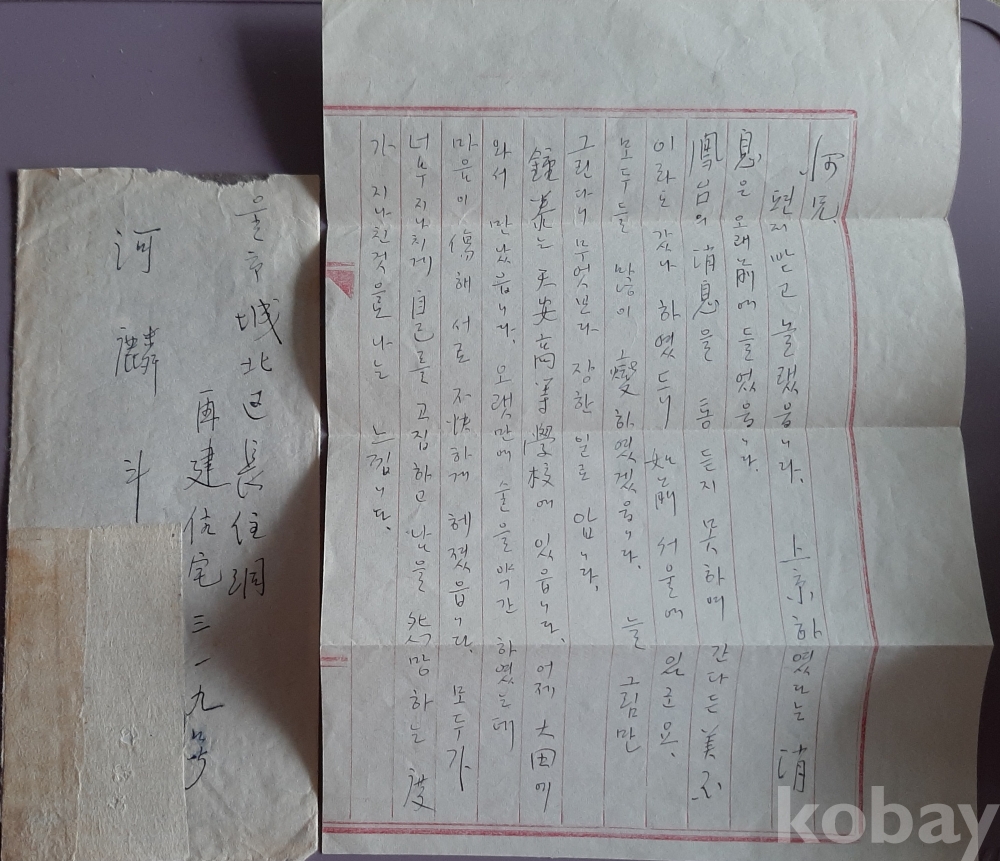 河兄.
편지 받고 놀랬읍니다. 上京하였다는 消
息은 오래 前에 들었읍니다.
消息을 통 듣지 못하여 간다든 美
이라도 갔나 하였드니 如前 서울에 있군요.
모두들 많이 變하였겠읍니다. 늘 그림만
그린다니 무엇보다 장한 일로 압니다.
鐘泰는 天安高等學校에 있읍니다. 어제 大田에
와서 만났읍니다. 오랫만에 술을 약간 하였는데
마음이 傷해 서로 不快하게 헤졌읍니다. 모두가
너무 지나치게 自己를 고집하고 남을 하는 度
가 지나친것으로 나는 느낍니다.
울市 城北区 長位洞
再建住宅 三一九号
河麟斗
kobay